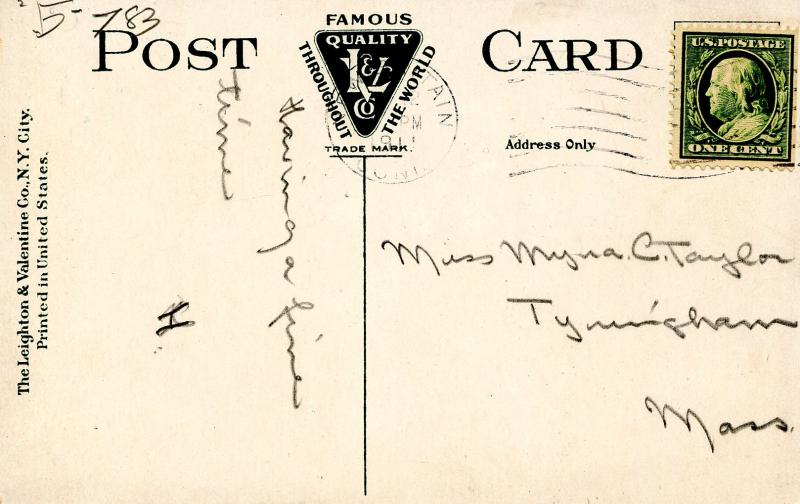 5-783
POST CARD
FAMOUS
QUALITY
THROUGHOUT
THE WORLD
L&V
Co
TRADE MARK.
Address Only
U.S. POSTAGE
ONE CENT
TAIN
PM
CONN
Having a fine
time
H
Miss Myra. C. Taylor
Tyringham
Mass.
The Leighton & Valentine Co., N.Y. City.
Printed in United States.